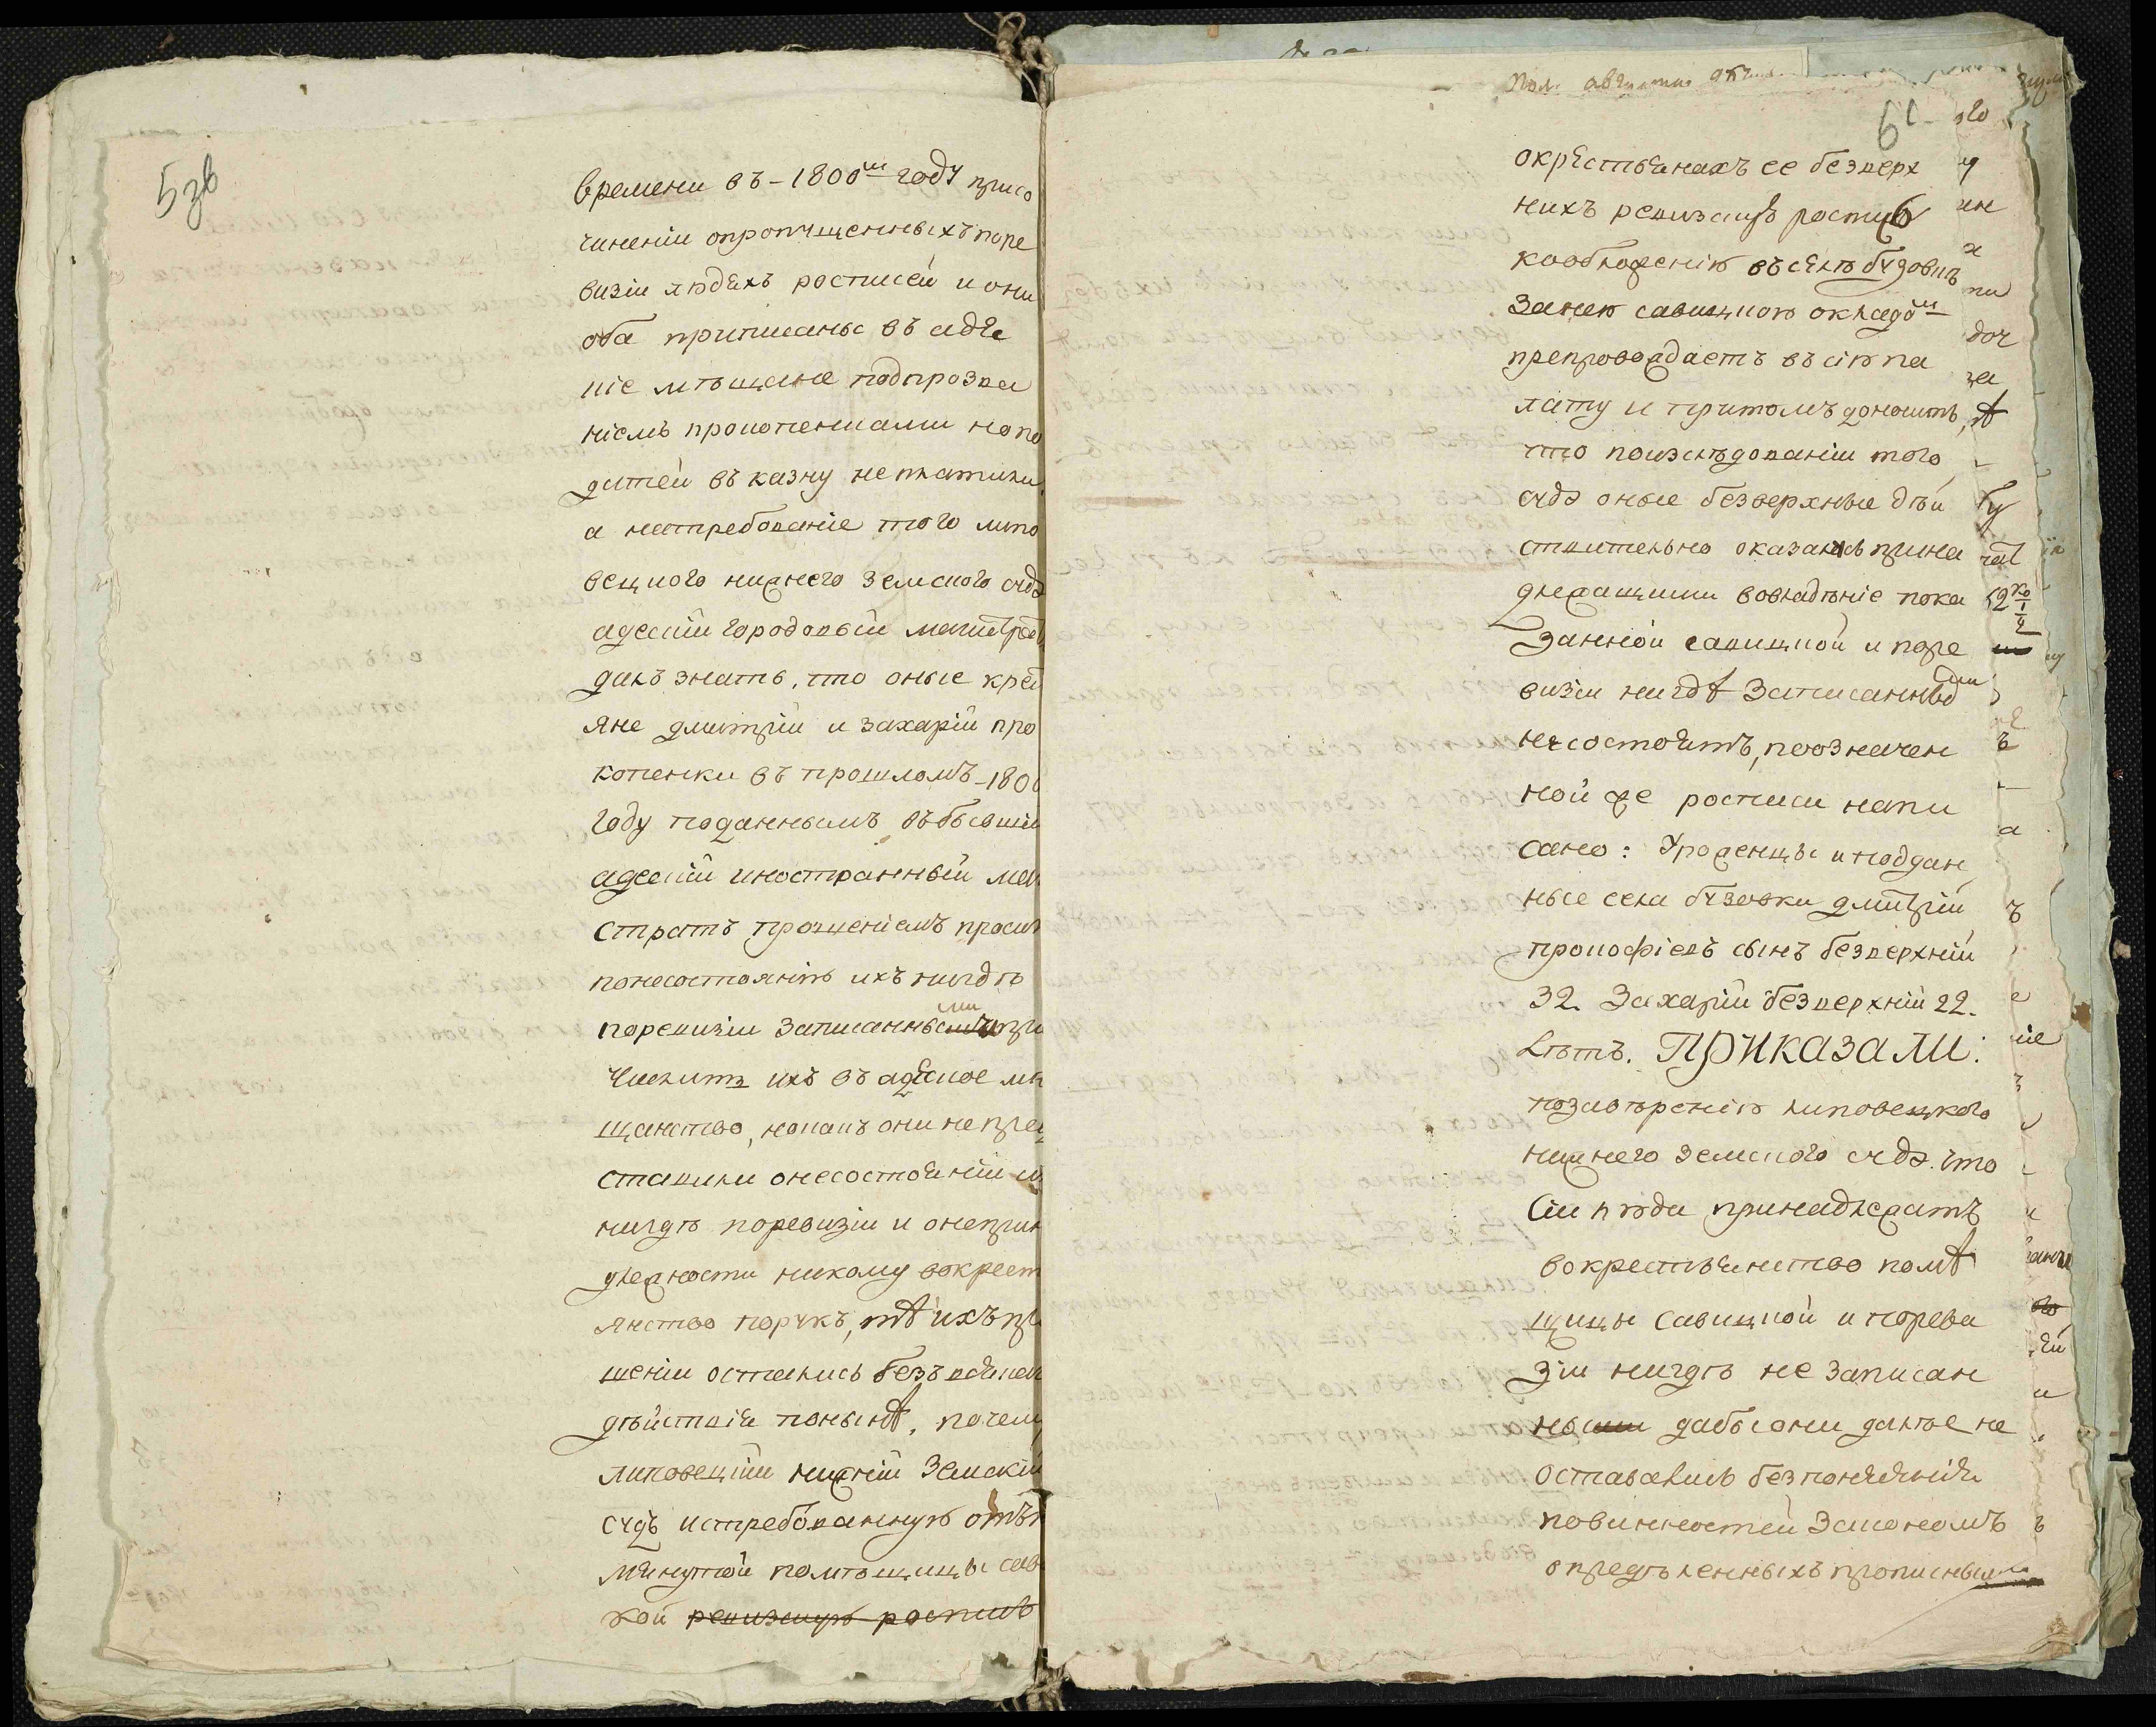 5 зв
времени въ - 1800м году присо
чинении опропущенныхъ поре
визіи людяхъ росписей и они
оба приписаны въ адес
ніе мѣщане подпрозва
ніемъ прокопенками но по
датей въ казну неплатили
а натребованіе того липо
вецкого нижнего земского суда
адесскій городовый магистратъ
далъ знать, что оные крес
яне дмитрій и захарій про
копенки въ прошломъ - 180
году поданнымъ въ бывшій
адесскій иностранный маг
стратъ прошеніемъ проси
понесостоянію ихъ нигдѣ
поревизіи записанными при
числить ихъ въ адеское мѣ
щанство, но какъ они непред
ставили онесостояніи и
нигдѣ поревизіи и онепри
длежности никому вокрест
янство порукъ, то и ихъ пр
шеніи остались безъ всякаго
дѣйствія понынѣ, почему
липовецкій нижній земскій
судъ истребованную отъ
мянутой помѣщицы сав
кой ревизскую роспись
Пол. августа
6
окрестьянахъ ее безверх
нихъ ревизскую роспись
кообложенію въ селѣ бузовкѣ
занею савицкою окладомъ
препровождаетъ въ сію па
лату и притомъ доноситъ,
что поизслѣдованіи того
суда оные безверхные дѣй
ствительно оказались прина
длежащими вовладѣніе пока
занной савицкой и поре
визіи нигдѣ записанными
несостоятъ, поозначен
ной же росписи напи
сано: Уроженцы иподдан
ные села бузовки дмитрій
прокофіевъ сынъ безверхній
32. Захарій безверхній 22.
Лѣтъ. ПРИКАЗАЛИ:
позавѣренію липовецкого
нижнего земского суда. что
сіи люди принадлежатъ
вокрестьянство помѣ
щицы савицкой и пореви
зіи нигдѣ не записан
ными дабы они далѣе не
оставались безпонятія
повинностей закономъ
опредѣленныхъ прописныя